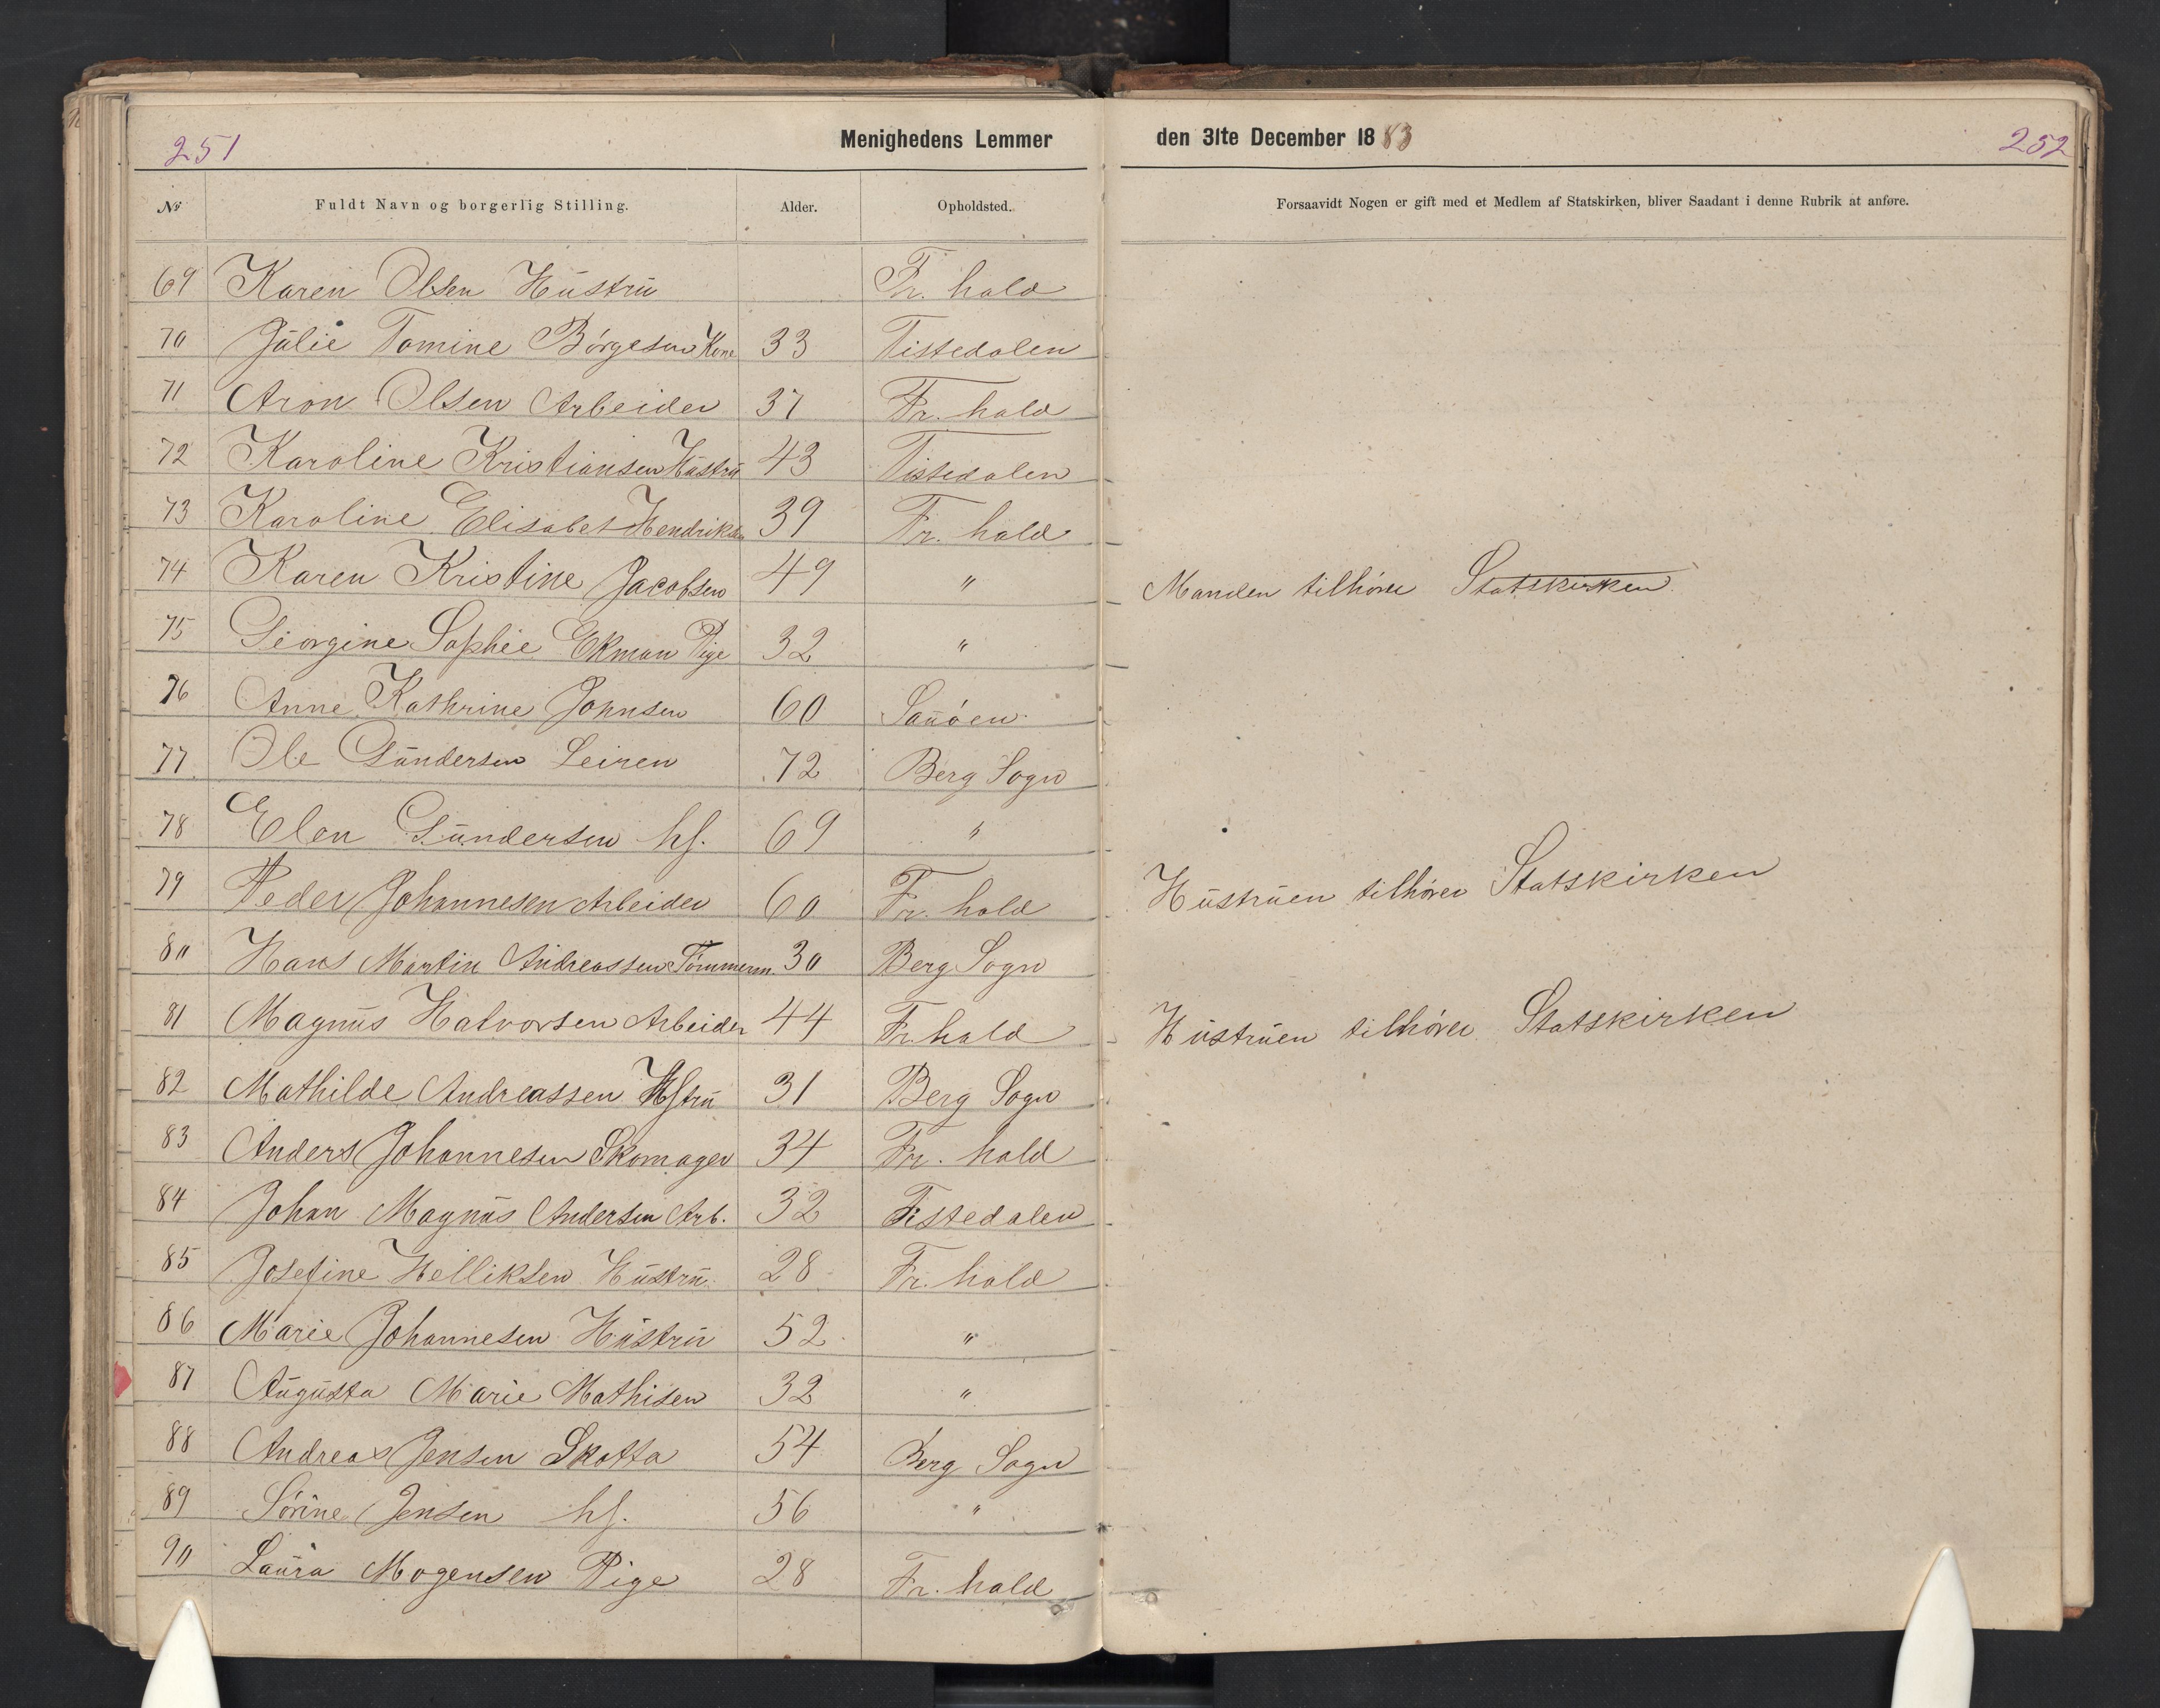 251 Menighedens Lemmer den 31te December 1883 252
No Fuldt Navn og borgerlig Stilling. Alder. Opholdsted. Forsaavidt Nogen er gift med et Medlem af Statskirken, bliver Saadant i denne Rubrik at anføre.
69 Karen Olsen Hustru Fr. hald
70 Julie Tomine Börgesen Kone 33 Tistedalen
71 Aron Olsen Arbeider 37 Fr. hald
72 Karoline Kristiansen Hustru 43 Tistedalen
73 Karoline Elisabet Hendriksen 39 Fr. hald
74 Karen Kristine Jacobsen 49 " Manden tilhörer Statskirken
75 Georgine Sophie Ekman Pige 32 "
76 Anne Kathrine Johnsen 60 Sauöen
77 Ole Gundersen Leiren 72 Berg Sogn
78 Elen Gundersen hs. 69 "
79 Peder Johannesen Arbeider 60 Fr. hald Hustruen tilhörer Statskirken
80 Hans Martin Andreassen Tömmerm. 30 Berg Sogn
81 Magnus Halvorsen Arbeider 44 Fr. hald Hustruen tilhörer Statskirken
82 Mathilde Andreassen Hstru 31 Berg Sogn
83 Anders Johannesen Skomager 34 Fr. hald
84 Johan Magnus Andersen Arb. 32 Tistedalen
85 Josefine Helliksen Hustru 28 Fr. hald
86 Marie Johannesen Hustru 52 "
87 Augusta Marie Mathisen 32 "
88 Andreas Jensen Skotta 54 Berg Sogn
89 Sörine Jensen hs. 56 "
90 Laura Mogensen Pige 28 Fr. hald